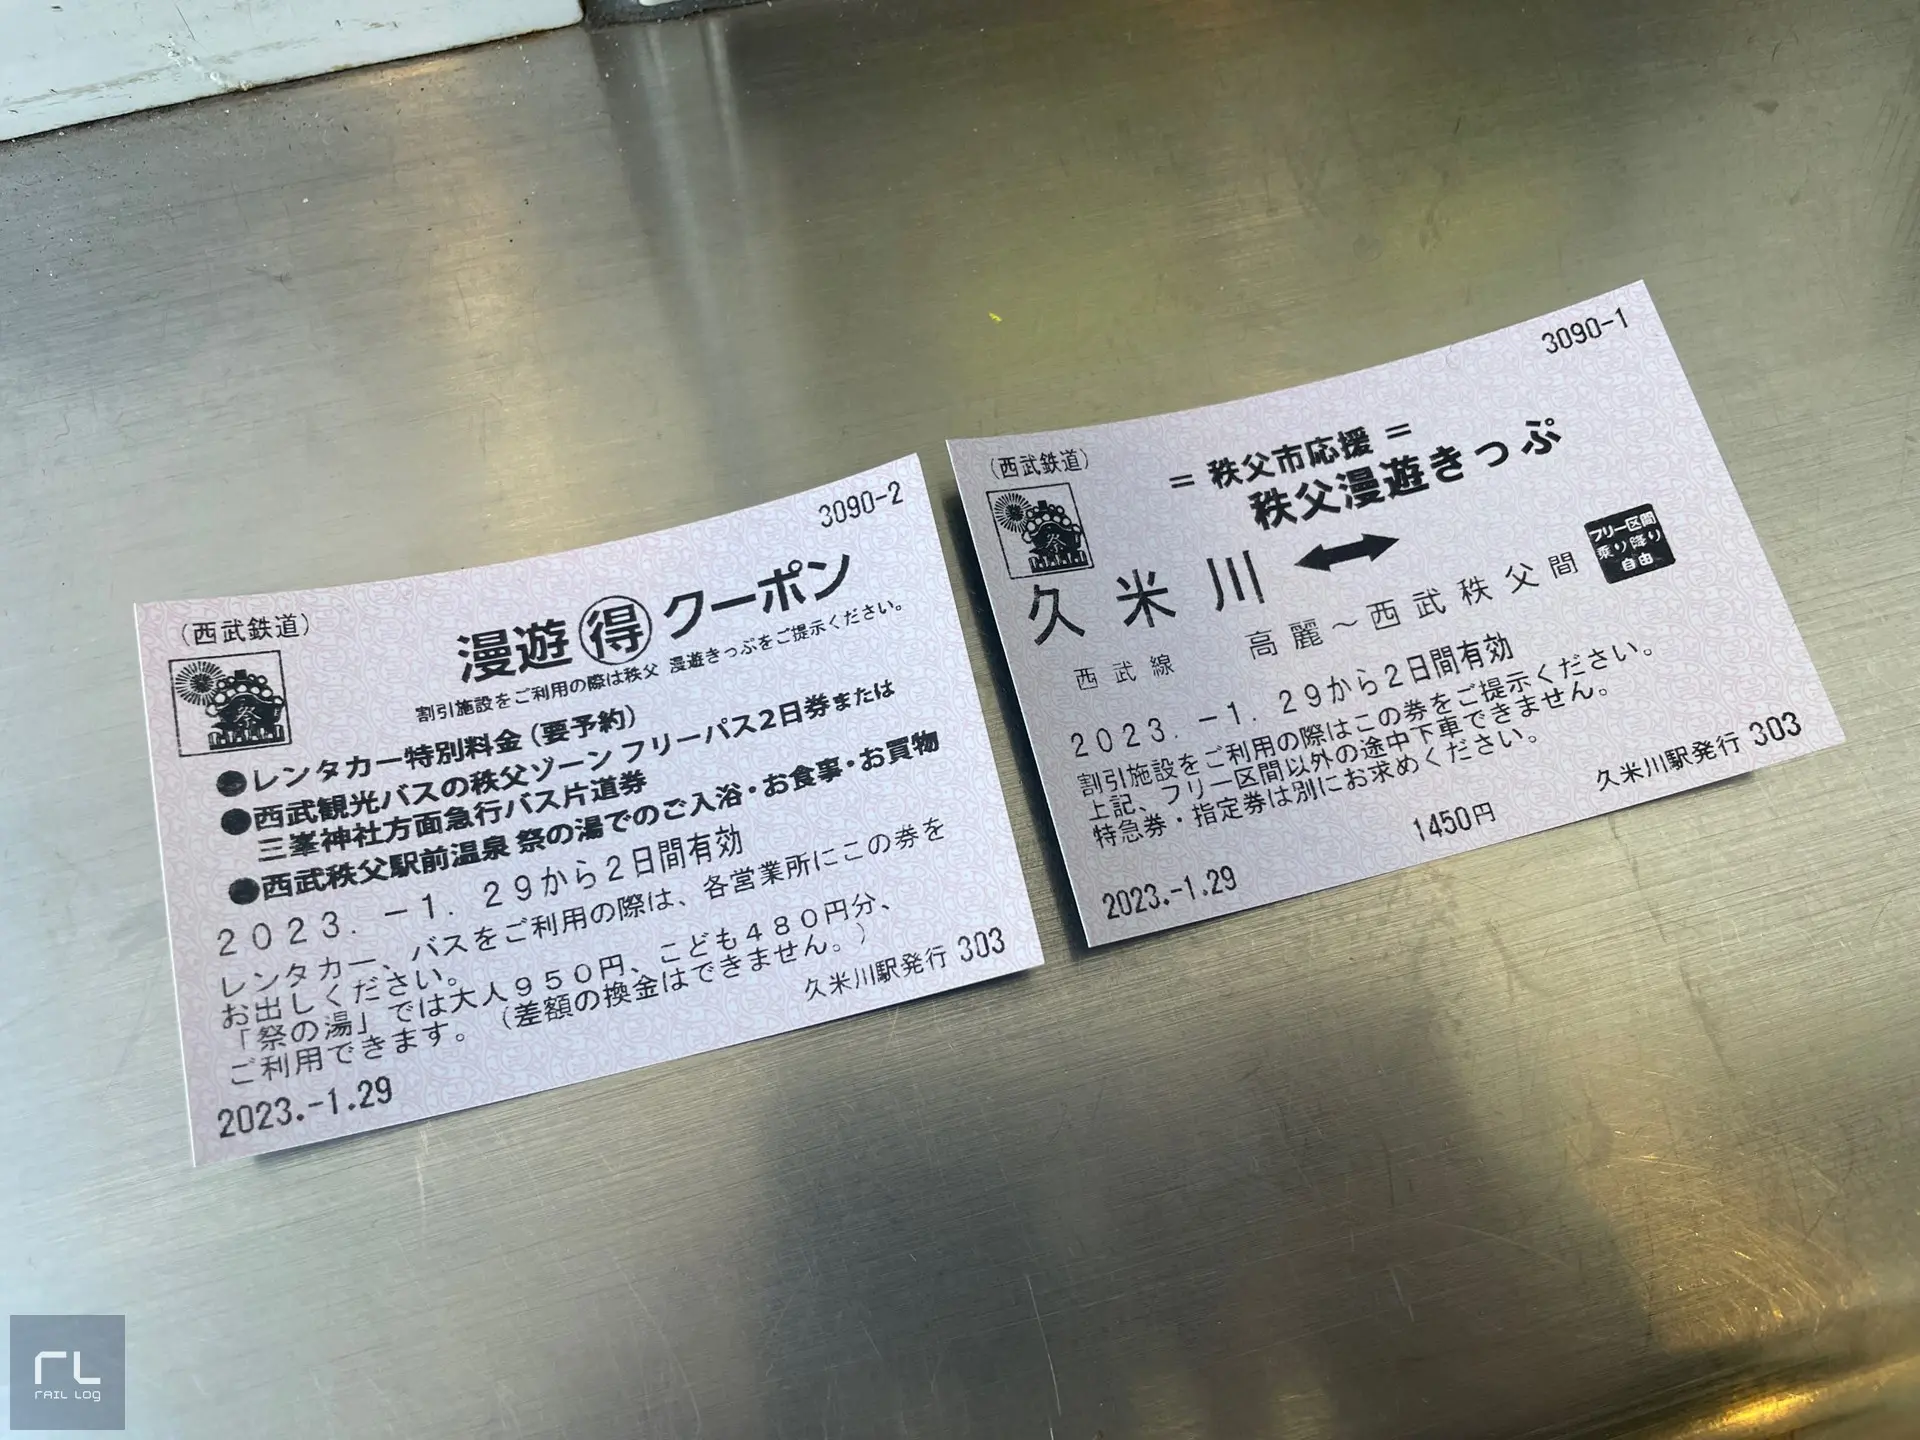 3090-2
(西武鉄道)
祭
漫遊 得 クーポン
割引施設をご利用の際は秩父 漫遊きっぷをご提示ください。
●レンタカー特別料金(要予約)
●西武観光バスの秩父ゾーン フリーパス2日券または
三峯神社方面急行バス片道券
●西武秩父駅前温泉 祭の湯でのご入浴・お食事・お買物
2023.-1.29から2日間有効
レンタカー、バスをご利用の際は、各営業所にこの券を
お出しください。
「祭の湯」では大人950円、こども480円分、
ご利用できます。(差額の換金はできません。)
久米川駅発行 303
2023.-1.29
3090-1
(西武鉄道)
祭
=秩父市応援=
秩父漫遊きっぷ
久米川 ↔
フリー区間
乗り降り
自由
西武線 高麗～西武秩父間
2023.-1.29から2日間有効
割引施設をご利用の際はこの券をご提示ください。
上記、フリー区間以外の途中下車できません。
特急券・指定券は別にお求めください。
1450円
久米川駅発行 303
2023.-1.29
rL
rAIL LOg